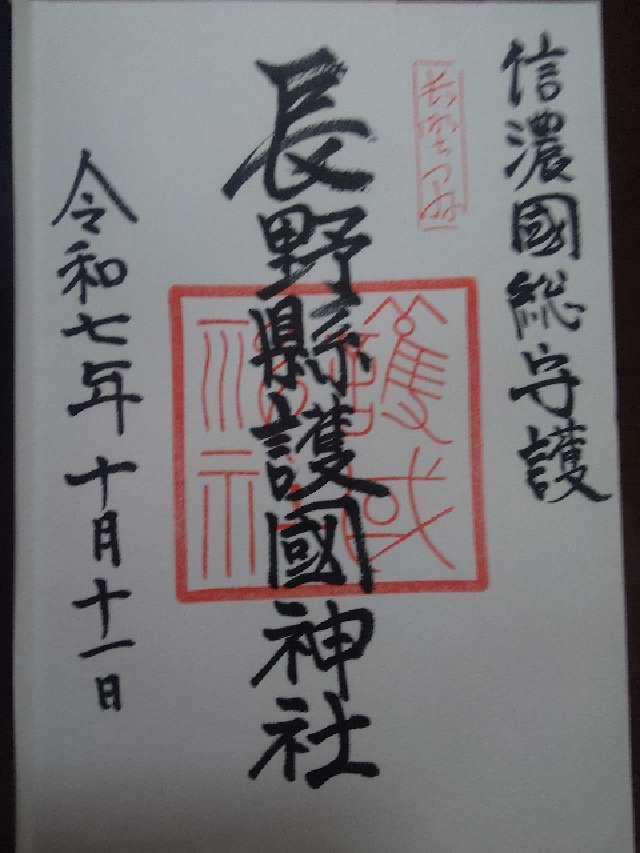 信濃國総守護
長野縣護國神社
令和七年十月十一日